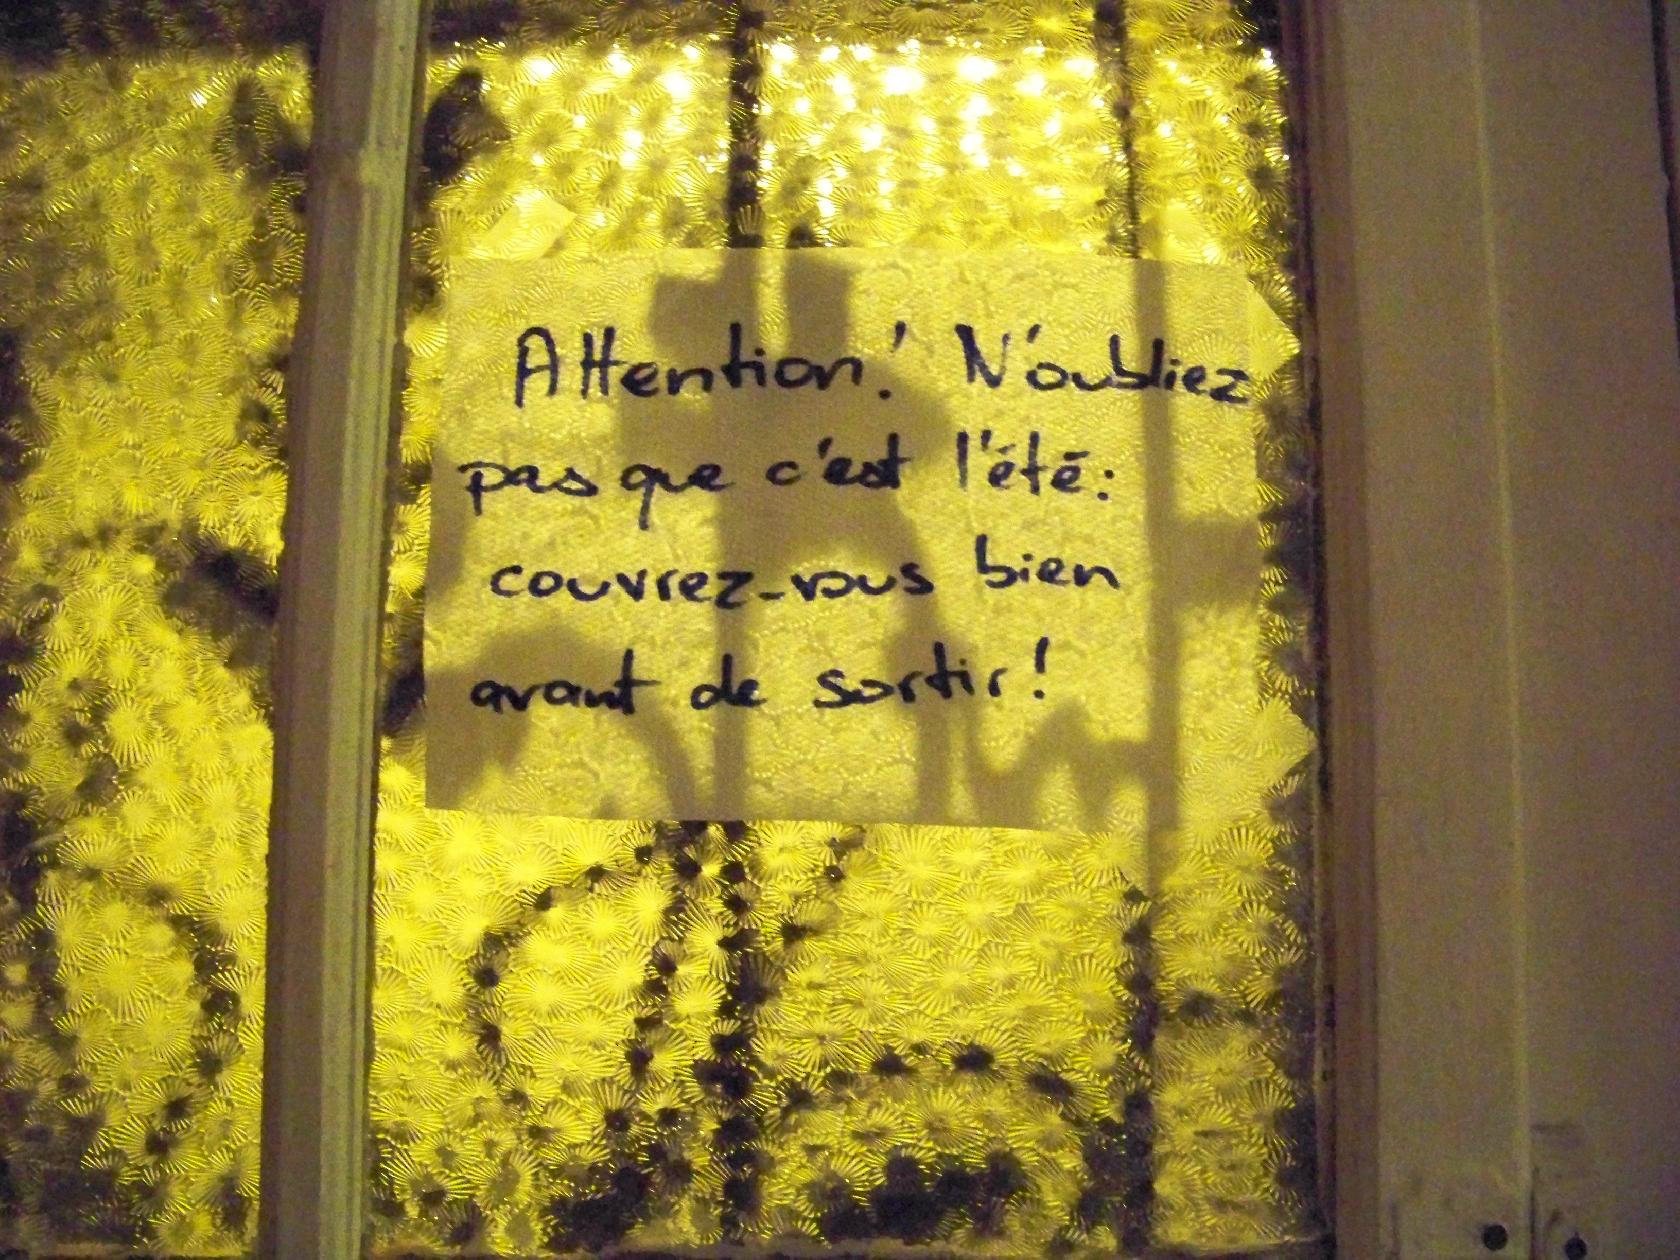 Attention! N'oubliez
pas que c'est l'été:
couvrez-vous bien
avant de sortir!